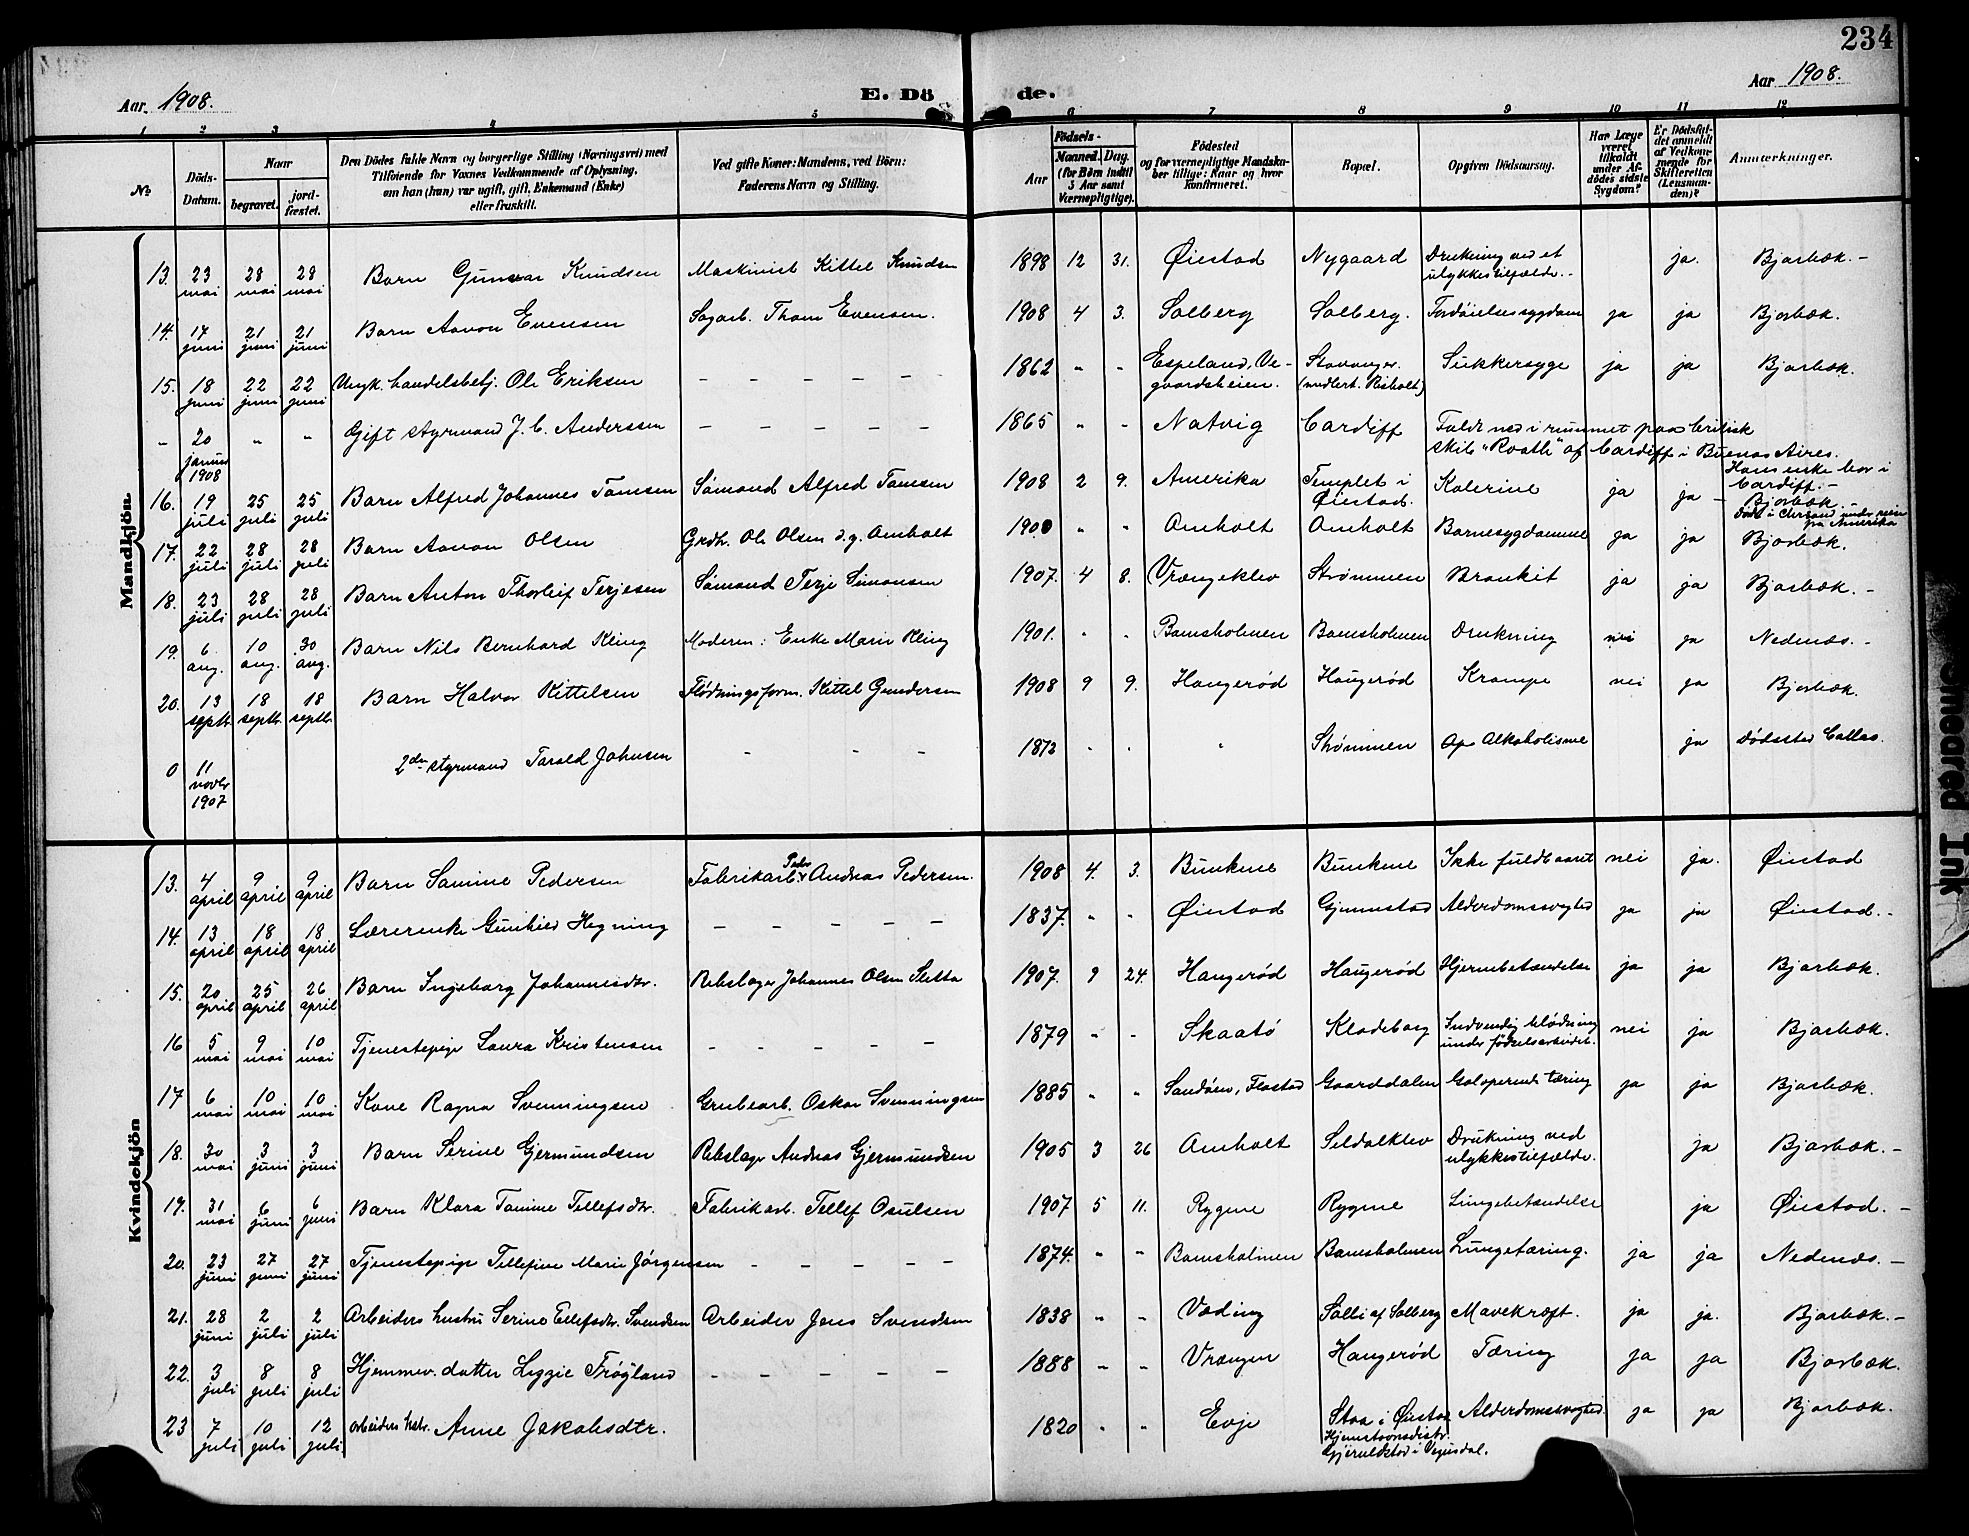 234
Aar 1908.
E. Dö de.
Aar 1908.
1 2 3 4 5 6 7 8 9 10 11 12
No
Döds-Datum.
Naar
begravet.
jord-fæstet.
Den Dödes fulde Navn og borgerlige Stilling (Næringsvei) med
Tilföiende for Voxnes Vedkommende af Oplysning,
om han (hun) var ugift, gift, Enkemand (Enke)
eller fraskilt.
Ved gifte Koner: Mandens, ved Börn:
Faderens Navn og Stilling.
Födsels-
Aar
Maaned. Dag.
(for Börn indtil
3 Aar samt
Værnepligtige).
Födested
og for værnepligtige Mandska-
ber tillige: Naar og hvor
konfirmeret.
Bopæl.
Opgiven Dödsaarsag.
Har Læge
været
tilkaldt
under Af-
dödes sidste
Sygdom?
Er Dödsfal-
det anmeldt
af Vedkom-
mende for
Skifteretten
(Lensman-
den)?
Anmærkninger.
Mandkjön
13. 23 mai 28 mai 28 mai Barn Gunvar Knudsen Maskinist Kittel Knudsen 1898 12 31. Øiestad Nygaard Drukning ved et ulykkestilfælde. - ja. Bjorbæk. -
14. 17 juni 21 juni 21 juni Barn Aavon Evensen Sagarb. Thom Evensen. 1908 4 3. Solberg Solberg. Fordöielsessygdom ja ja Bjorbæk.
15. 18 juni 22 juni 22 juni Ungk. handelsbetj. Ole Eriksen - - - - - 1862 " " Espeland, Ve-gaardsheien. Stavanger. (midlert. Riholt) Sukkersyge ja ja Bjorbæk.
- 20 januar 1908 " " Gift styrmand J. C. Anderssen - - - - - 1865 " " Natvig Cardiff Faldt ned i rummet paa britisk skib "Roath" af Cardiff i Buenos Aires. Hans enke bor i Cardiff. -
16. 19 juli 25 juli 25 juli Barn Alfred Johannes Tomsen Sömand Alfred Tomsen 1908 2 9. Amerika Templet i Øiestad. Kolerine ja ja - Bjorbæk. Født i Chrsand under reise fra Amerika
17. 22 juli 28 juli 28 juli Barn Aavon Olsen Grdb. Ole Olsen d.y. Omholt 1900 " " Omholt Omholt Barnesygdomme ja ja Bjorbæk.
18. 23 juli 28 juli 28 juli Barn Anton Thorleif Terjesen Sömand Terje Simonsen 1907. 4 8. Vrængeklev Strømmen Bronkit ja ja Bjorbæk. -
19. 6 aug. 10 aug. 30 aug. Barn Nils Bernhard Kling Moderen: Enke Marie Kling 1901. " " Bomsholmen Bomsholmen Drukning nei ja Nedenæs. -
20. 13 septb. 18 septb. 18 septb. Barn Halvor Kittelsen Flödningsform. Kittel Gundersen 1908 9 9. Haugerød Haugerød Krampe nei ja Bjorbæk.
0 11 novbr 1907 2den styrmand Tarald Johnsen - - - 1872 " " " Strømmen Af Alkoholisme ja Dödssted Callao.
Kvindekjön
13. 4 april 9 april 9 april Barn Samine Pedersen Fabrikarb. Peder Andreas Pedersen. 1908 4. 3. Bunkene Bunkene Ikke fuldbaaret nei ja. Øiestad
14. 13 april 18 april 18 april Lærerenke Gunhild Hegning - - - - - 1837. " " Øiestad Gjennestad Alderdomssvaghed ja ja Øiestad. -
15. 20 april 25 april 26 april Barn Ingeborg Johannesdtr. Rebslager Johannes Olsen Sletta 1907. 9 24. Haugerød Haugerød Hjernebetændelse ja ja Bjorbæk.
16 5 mai 9 mai 10 mai Tjenestepige Laura Kristensen - - - - - 1879 " - Skaatö Klodeborg Indvendig blødning under fødselsarbeidet. nei ja Bjorbæk.
17 6 mai 10 mai 10 mai Kone Ragna Svenningsen Grubearb. Oskar Svenningsen 1885 " " Sandöen, Flostad Gaarddalen Galoperende tæring ja ja Bjorbæk.
18. 30 mai 3 juni 3 juni Barn Serine Gjermundsen Rebslager Andreas Gjermundsen 1905 3 26 Omholt Seldalklev Drukning ved ulykkestilfælde. ja Bjorbæk. -
19. 31 mai 6 juni 6 juni Barn Klara Tomine Tellefsdtr. Fabrikarb. Tellef Osulsen 1907 5 11. Rygene Rygene Lungebetændelse ja Øiestad. -
20. 23 juni 27 juni 27 juni Tjenestepige Tellefine Marie Jörgensen - - - - - 1874. " " Bomsholmen Bomsholmen Lungetæring. ja ja Nedenæs. -
21. 28 juni 2 juli 2 juli Arbeiders hustru Serine Tellefsdtr. Svendsen Arbeider Jens Svendsen 1838 " " Vading Salli af Solberg Mavekræft. ja ja. Bjorbæk. -
22. 3 juli 8 juli 8 juli Hjemmev. datter Lizzie Frøyland - - - - - 1888 " " Vrængen Haugerød Tæring ja ja Bjorbæk.
23 7 juli 10 juli 12 juli arbeiders hstr. Anne Jakobsdtr. 1820 " " Evje Stoa i Øiestad Hjemstavnsdistr. Gjeruldstad i Vegusdal. Alderdomssvaghed. ja ja Bjorbæk.
smeared Ink